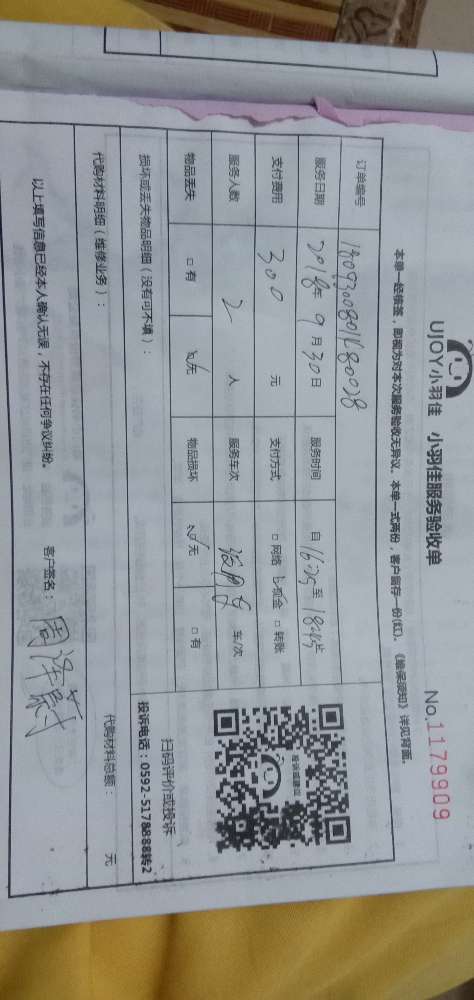 UJOY小羽佳 小羽佳服务验收单
No.1179909
本单一经核签，即视为对本次服务验收无异议。本单一式两份，客户留存一份(红)。《维保须知》详见背面。
订单编号
服务日期 2018年 9月30日 服务时间 自 至
支付费用 300 元 支付方式 □网络 现金 □转账
服务人数 2 人 服务车次 车/次
物品丢失 □有 无 物品损坏 无 □有
损坏或丢失物品明细（没有可不填）：
扫码评价或投诉
投诉电话：0592-5178888转2
代购材料明细（维修业务）：
代购材料总额： 元
以上填写信息已经本人确认无误，不存在任何争议纠纷。 客户签名：